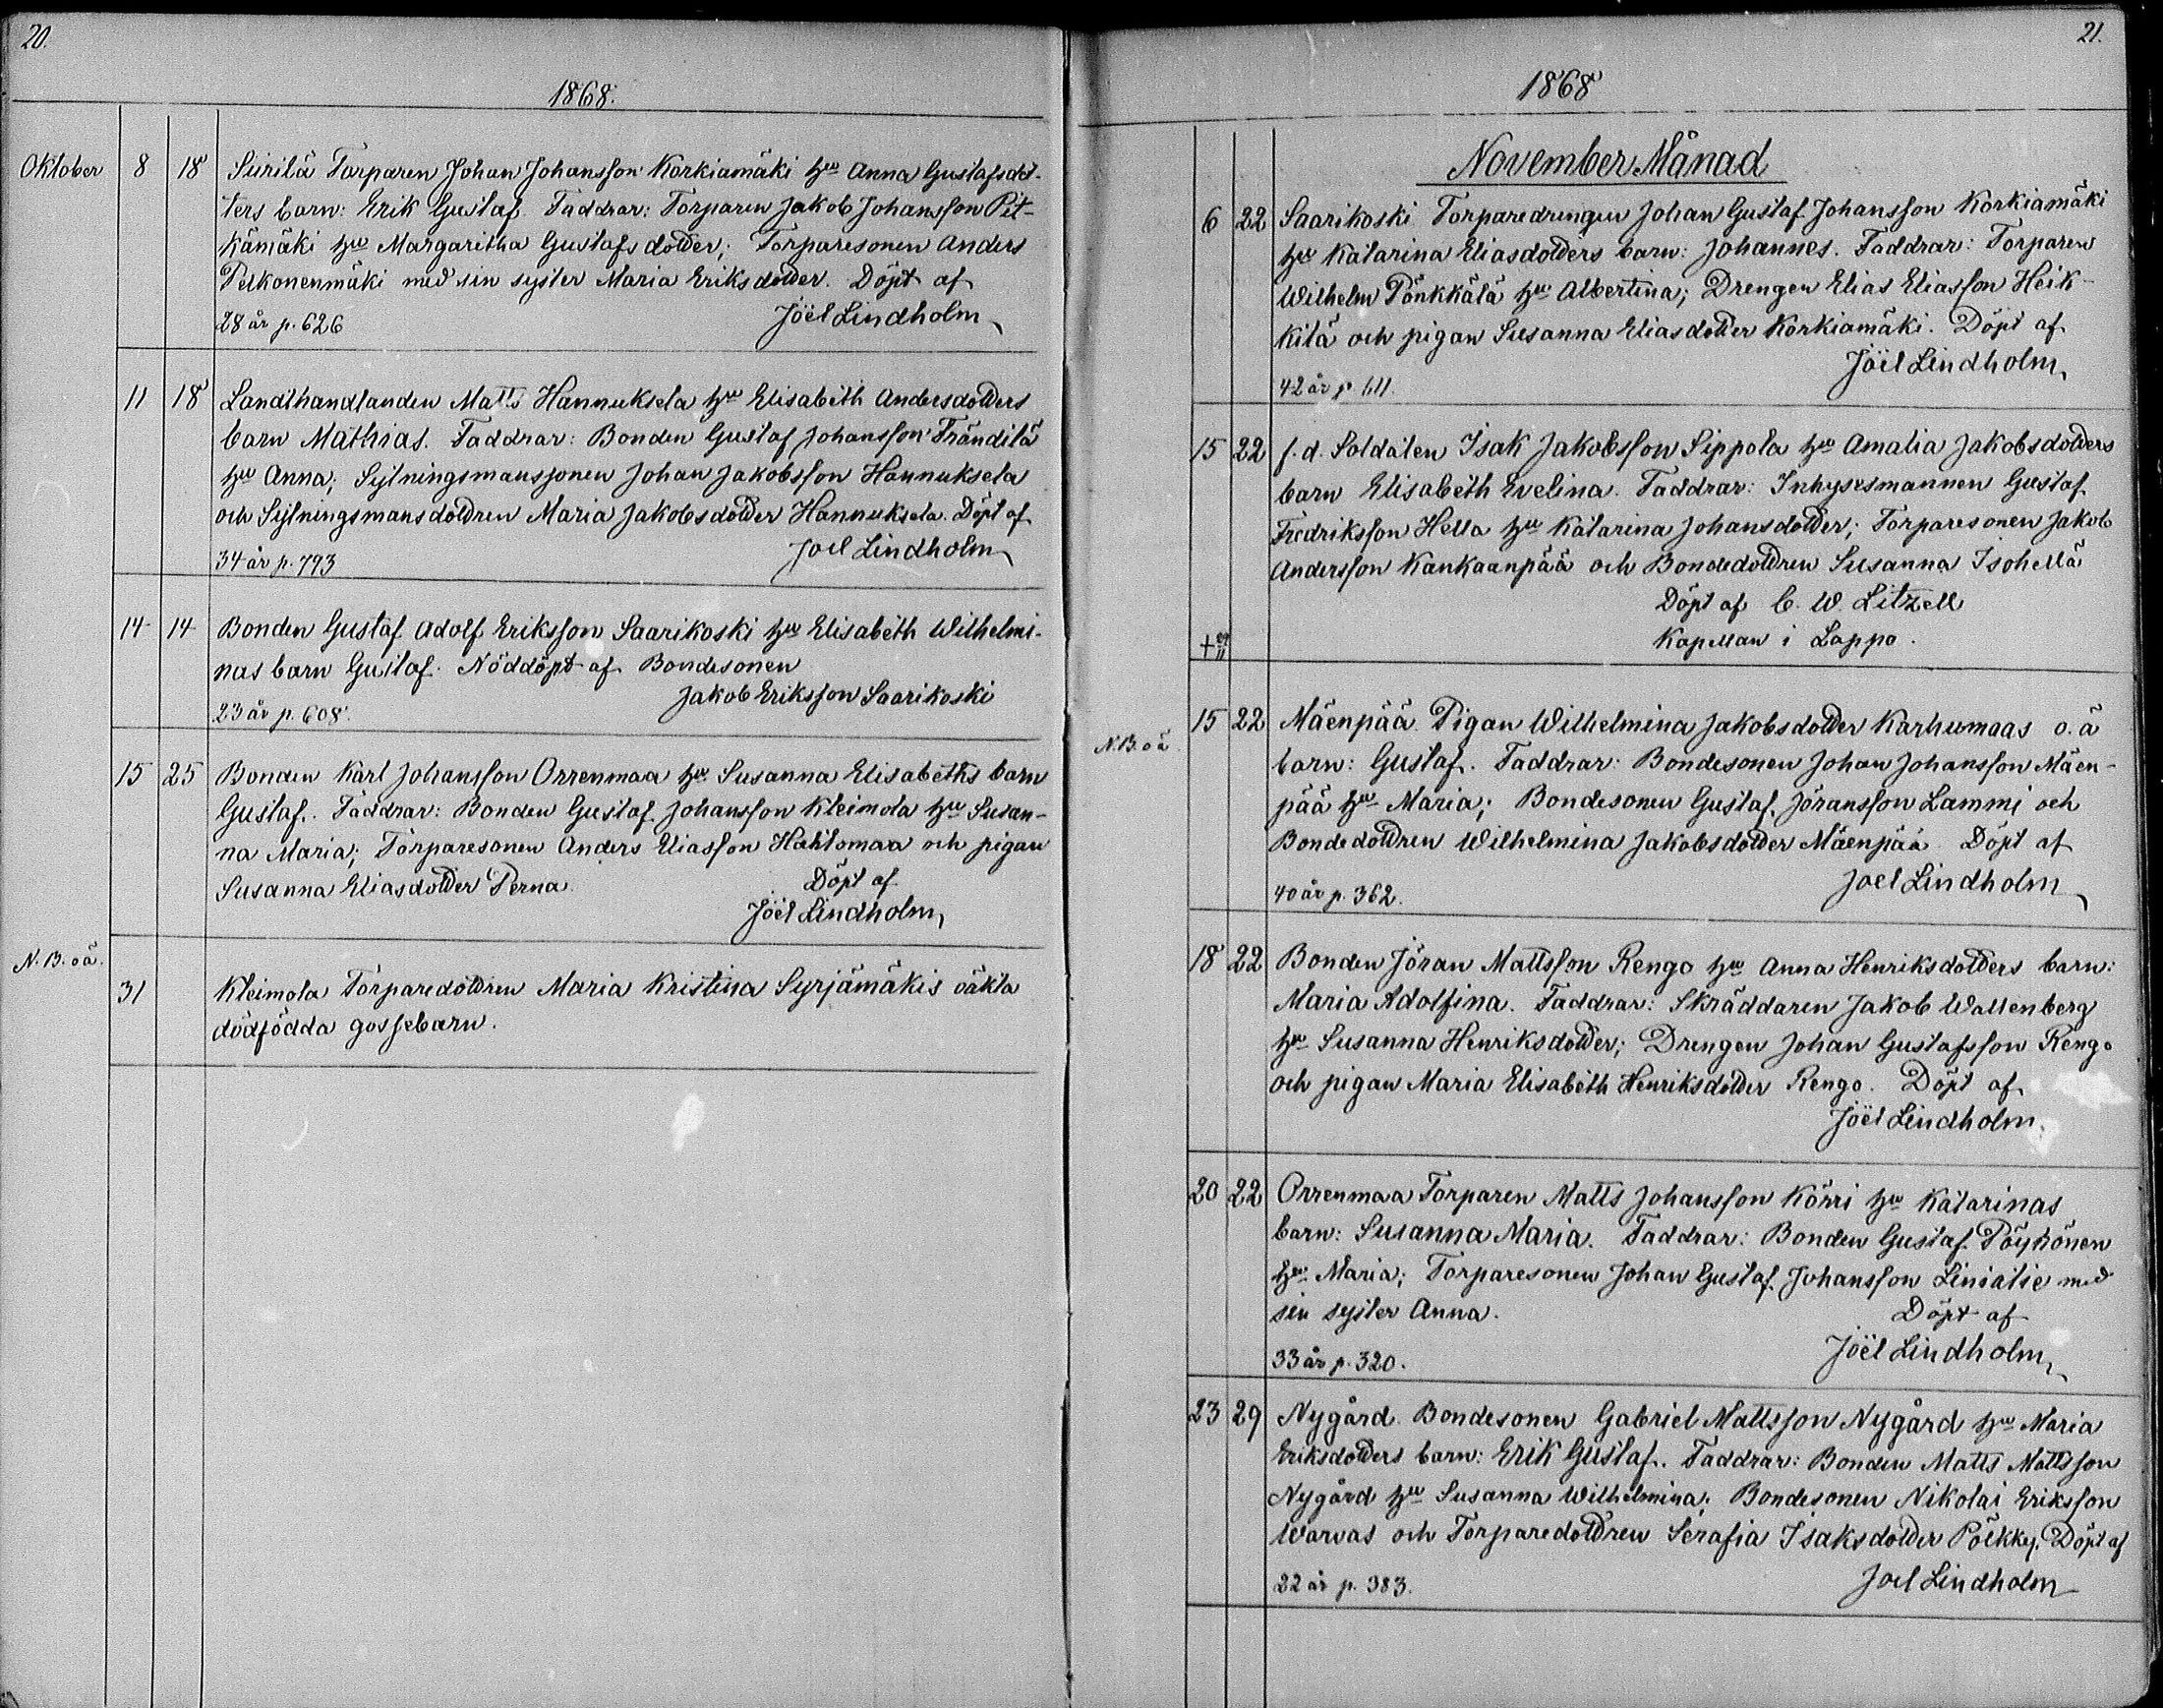 20.
1868.
Oktober 8 18 Siirilä Torparen Johan Johansson Korkiamäki hu Anna Gustafsdot-
ters barn: Erik Gustaf. Faddrar: Torparen Jakob Johansson Pit-
kämäki hu Margaritha Gustafsdotter; Torparesonen Anders
Pelkonenmäki med sin syster Maria Eriksdotter. Döpt af
28 år p. 626 Joël Lindholm
11 18 Landthandlanden Matts Hannuksela hu Elisabeth Andersdotters
barn Mathias. Faddrar: Bonden Gustaf Johansson Frändilä
hu Anna; Sytningsmanssonen Johan Jakobsson Hannuksela
och Sytningsmansdottren Maria Jakobsdotter Hannuksela. Döpt af
34 år p. 793 Joel Lindholm
14 14 Bonden Gustaf Adolf Eriksson Saarikoski hu Elisabeth Wilhelmi-
nas barn Gustaf. Nöddöpt af Bondesonen
Jakob Eriksson Saarikoski
23 år p. 608.
15 25 Bonden Karl Johansson Orrenmaa hu Susanna Elisabeths barn
Gustaf. Faddrar: Bonden Gustaf Johansson Kleimola hu Susan-
na Maria; Torparesonen Anders Eliasson Hahtomaa och pigan
Susanna Eliasdotter Perna. Döpt af
Joël Lindholm
N.B. o ä.
31 Kleimola Torparedottren Maria Kristina Syrjämäkis oäkta
dödfödda gossebarn.
21.
1868
November Månad
6 22 Saarikoski Torparedrengen Johan Gustaf Johansson Korkiamäki
hu Katarina Eliasdotters barn: Johannes. Faddrar: Torparen
Wilhelm Pönkkälä hu Albertina; Drengen Elias Eliasson Heik-
kilä och pigan Susanna Eliasdotter Korkiamäki. Döpt af
Joël Lindholm
42 år p. 611.
15 22 f. d. Soldaten Isak Jakobsson Sippola hu Amalia Jakobsdotters
barn Elisabeth Evelina. Faddrar: Inhysesmannen Gustaf
Fredriksson Hella hu Katarina Johansdotter; Torparesonen Jakob
Andersson Kankaanpää och Bondedottren Susanna Isohellä
Döpt af C. W. Litzell
+ 29/11 Kapellan i Lappo.
15 22 Mäenpää Pigan Wilhelmina Jakobsdotter Karhumaas o. ä
N.B. o ä
barn: Gustaf. Faddrar: Bondesonen Johan Johansson Mäen-
pää hu Maria; Bondesonen Gustaf Jöransson Lammi och
Bondedottren Wilhelmina Jakobsdotter Mäenpää. Döpt af
40 år p. 362. Joel Lindholm
18 22 Bonden Jöran Mattsson Rengo hu Anna Henriksdotters barn:
Maria Adolfina. Faddrar: Skräddaren Jakob Wallenberg
hu Susanna Henriksdotter; Drengen Johan Gustafsson Rengo
och pigan Maria Elisabeth Henriksdotter Rengo. Döpt af
Joël Lindholm.
20 22 Orrenmaa Torparen Matts Johansson Körri hu Katarinas
barn: Susanna Maria. Faddrar: Bonden Gustaf Pöyhönen
hu Maria; Torparesonen Johan Gustaf Johansson med
sin syster Anna. Döpt af
33 år p. 320. Joël Lindholm
23 29 Nygård Bondesonen Gabriel Mattsson Nygård hu Maria
Eriksdotters barn: Erik Gustaf. Faddrar: Bonden Matts Mattsson
Nygård hu Susanna Wilhelmina; Bondesonen Nikolai Eriksson
Warvas och Torparedottren Serafia Isaksdotter Pölkky. Döpt af
22 år p. 383. Joel Lindholm